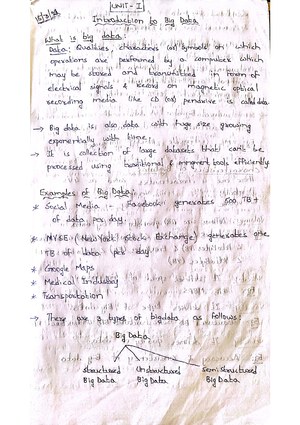 UNIT-I
Introduction to Big Data
What is big data:
Data: Qualities, characters (or) symbols on which
operations are preformed by a computer which
may be stored and transmitted in torm of
electrical signals & record on magnetic optical
recording media like CD (or) pendrive is called data
→ Big data is also data with huge size growing
exponentially with time.
→ It is collection of large datasets that can't be
processed using traditional & mngment tools efficiently
Examples of Big Data:
* Social Media : Facebook generates 500 TB+
of data per day.
* NYSE (New York Stock Exchange) generates one
TB of data per day
* Google Maps
* Medical Industry
* Transportation
→ There are 3 types of bigdata as follows:
Big Data
structured Unstructured Semi structured
Big Data Big Data Big Data